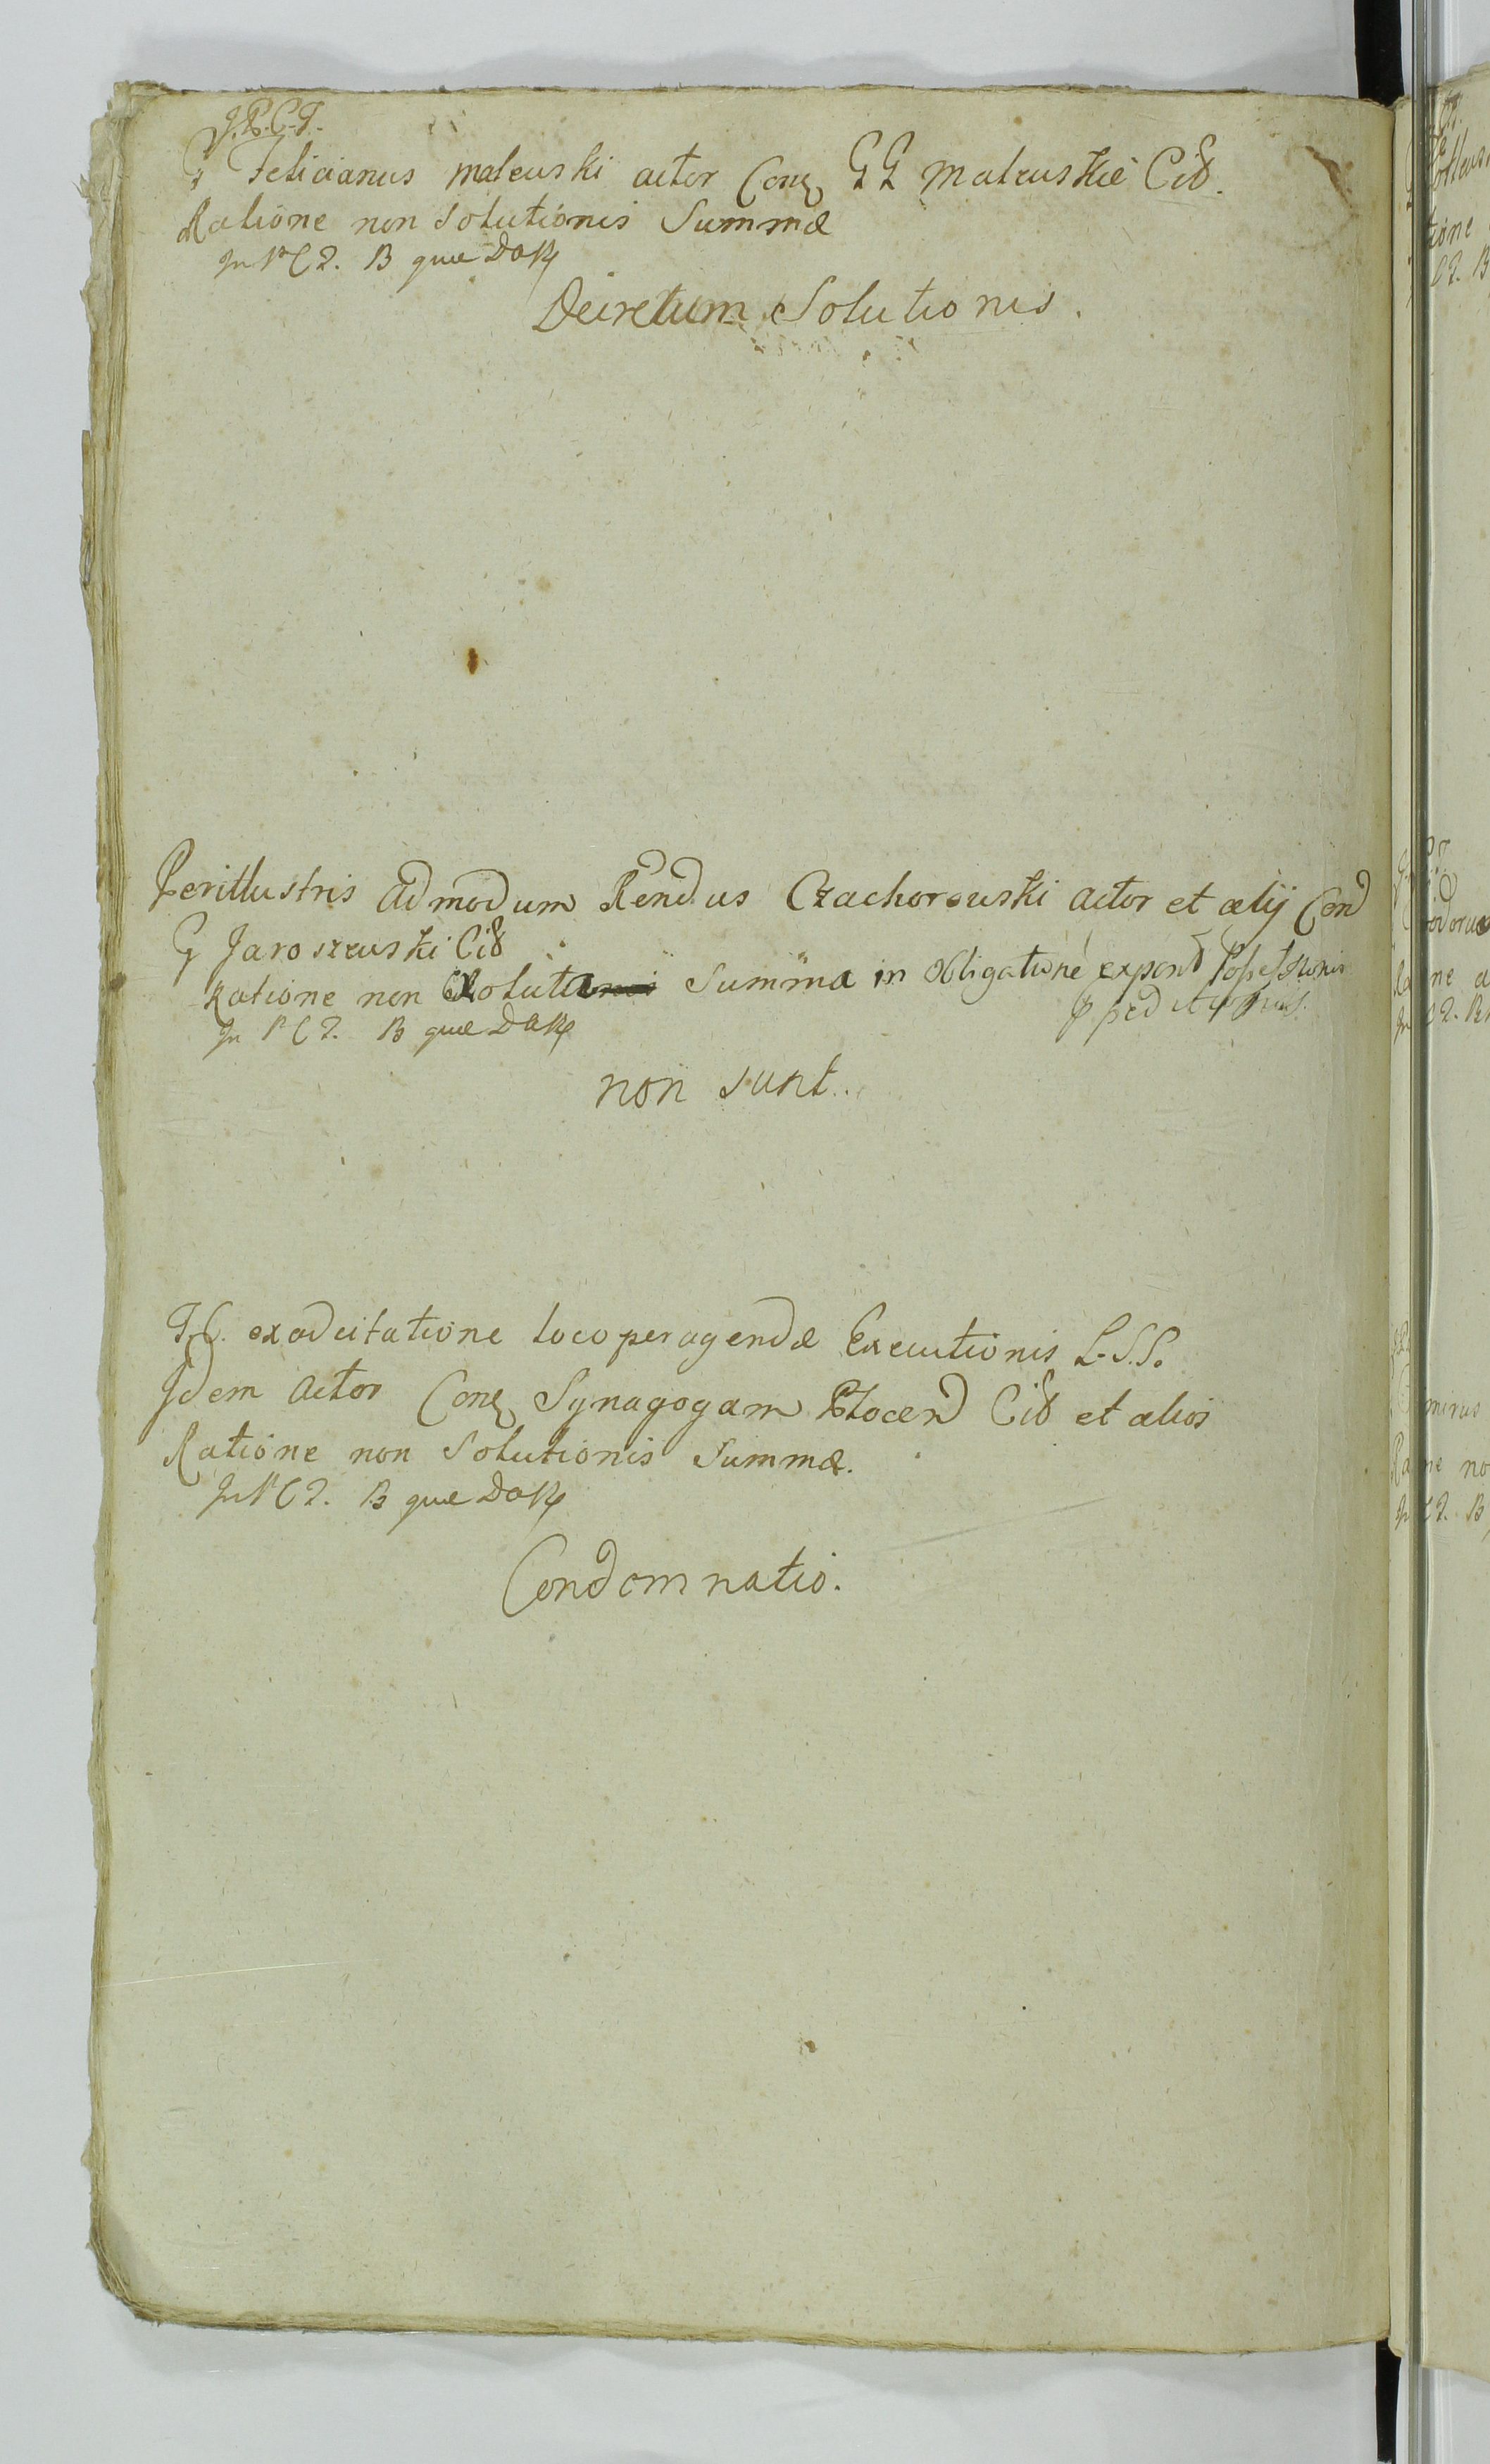 J.P.C.T.
G Felicianus Maleuski actor Conq GG Maleuskie Citt.
Ratione non Solutionis Summæ
In PCT. B quæ DaRp
Decretum Solutionis.
Perillustris Admodum Rendus Czachorouski actor et alij Con
G Jaroszeuski Citt
Ratione non Exoluta Summa in Obligatione expend Possessionis
In PCT. B quæ DaRp
non sunt.
T.C. ex adcitatione loco peragendæ Executionis L.S.S.
Idem Actor Conq Synagogam Plocen Citt et alios
Ratione non Solutionis Summæ.
In PCT. B quæ DaRp
Condemnatio.